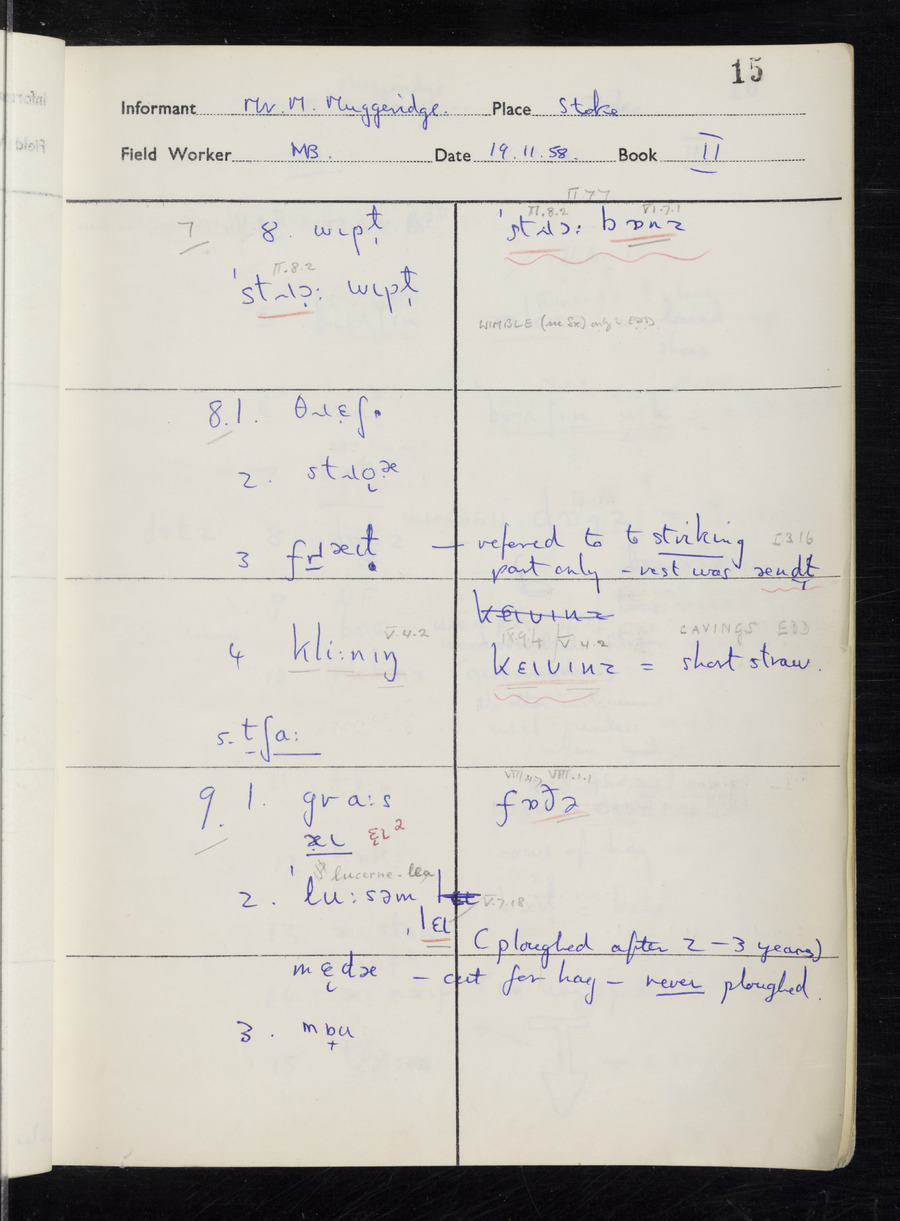 15
Informant Mr. M. Muggeridge. Place Stoke
Field Worker MB. Date 19.11.58. Book II
7 8. wɩpt̞
II.8.2
ˈstɹɔ̞: wɩpt̞
II 77
II.8.2 VI.7.1
ˈstɹɔ: bɒnz
WIMBLE (ne Sx) only EDD
8.1. θɹɛʃ.
2. stɹɔ̞ᵊ
3 fɹæɩt̞ — refered to to striking I 3 16
part only - rest was
kɛɩvɩnz
4 kli:nɪŋ V.4.2
IX 94 V.4.2 CAVINGS EDD
kɛɩvɩnz = short straw.
5. tʃa:
9. 1. grɑ:s
æɩ ɛɩ 2
VIII.1.1
fɒðə
lucerne-lea
2. ˈlu:səm
ˌlɛɩ V.7.18
(ploughed after 2-3 years)
mɛ̞də - cut for hay - never ploughed.
3. mɒu